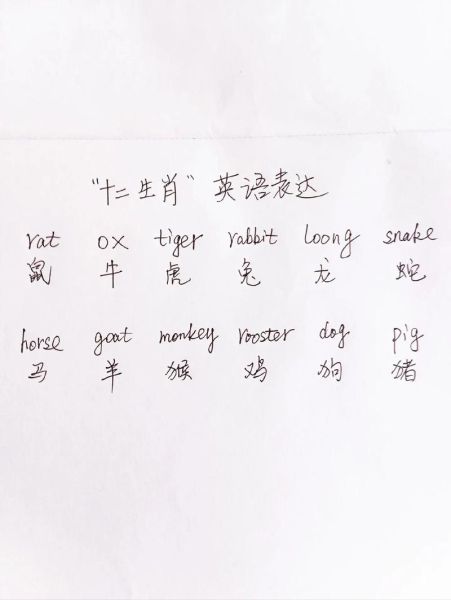 "十二生肖"英语表达
rat ox tiger rabbit loong snake
鼠 牛 虎 兔 龙 蛇
horse goat monkey rooster dog pig
马 羊 猴 鸡 狗 猪